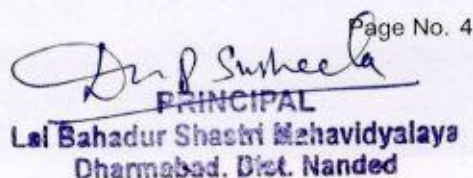 Page No. 4
Dr. P Susheela
PRINCIPAL
Lal Bahadur Shastri Mahavidyalaya
Dharmabad. Dist. Nanded